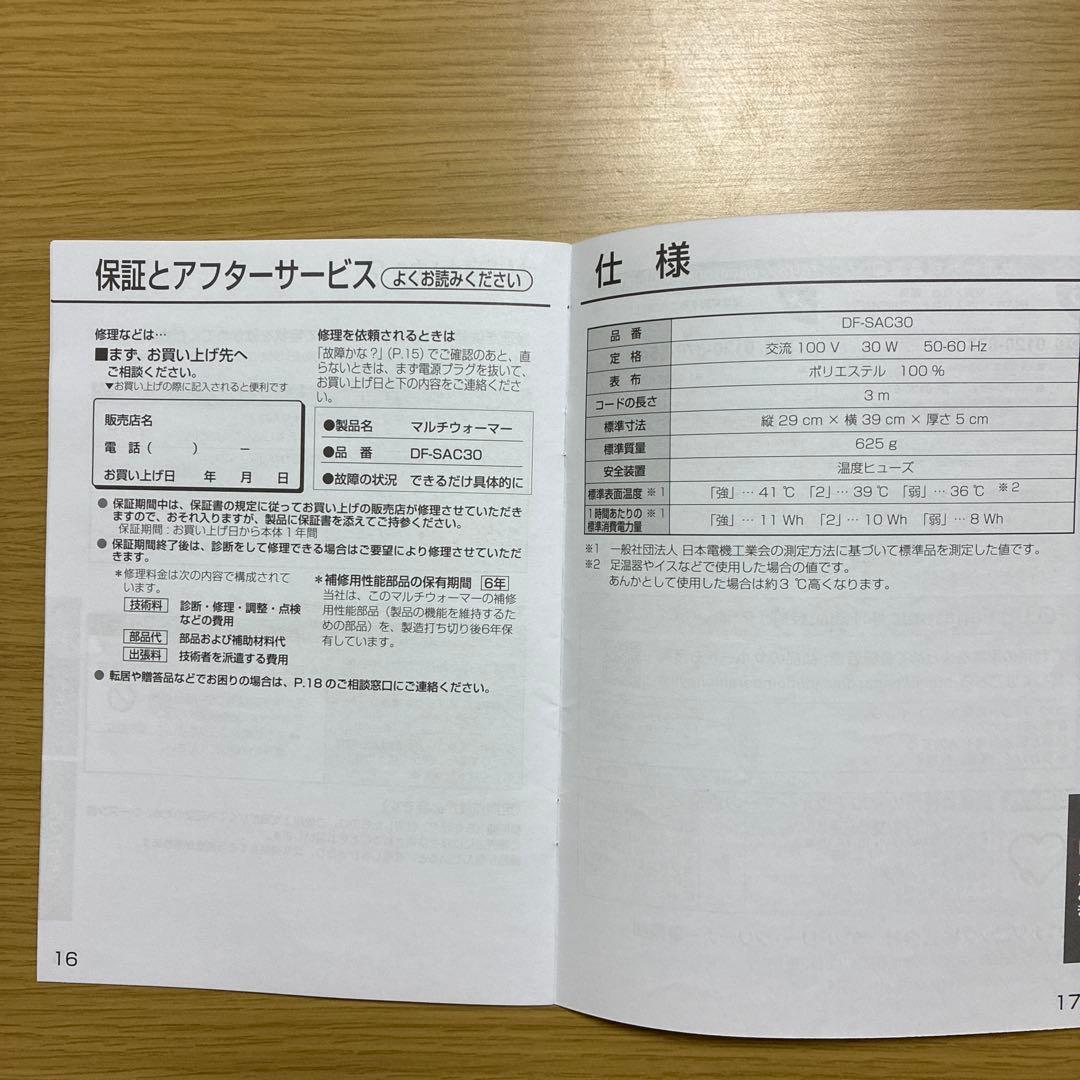 保証とアフターサービス よくお読みください
修理などは…
■まず、お買い上げ先へ
ご相談ください。
▼お買い上げの際に記入されると便利です
販売店名
電 話 ( ) −
お買い上げ日 年 月 日
修理を依頼されるときは
「故障かな?」(P.15) でご確認のあと、直
らないときは、まず電源プラグを抜いて、
お買い上げ日と下の内容をご連絡くださ
い。
●製品名 マルチウォーマー
●品 番 DF-SAC30
●故障の状況 できるだけ具体的に
● 保証期間中は、保証書の規定に従ってお買い上げの販売店が修理させていただき
ますので、おそれ入りますが、製品に保証書を添えてご持参ください。
保証期間:お買い上げ日から本体1年間
● 保証期間終了後は、診断をして修理できる場合はご要望により修理させていただ
きます。
*修理料金は次の内容で構成されて
います。
技術料 診断・修理・調整・点検
などの費用
部品代 部品および補助材料代
出張料 技術者を派遣する費用
*補修用性能部品の保有期間 6年
当社は、このマルチウォーマーの補修
用性能部品(製品の機能を維持するた
めの部品)を、製造打ち切り後6年保
有しています。
● 転居や贈答品などでお困りの場合は、P.18 のご相談窓口にご連絡ください。
16
仕 様
品 番 DF-SAC30
定 格 交流 100 V 30 W 50-60 Hz
表 布 ポリエステル 100 %
コードの長さ 3 m
標準寸法 縦 29 cm × 横 39 cm × 厚さ 5 cm
標準質量 625 g
安全装置 温度ヒューズ
標準表面温度 ※1 「強」… 41 ℃ 「2」… 39 ℃ 「弱」… 36 ℃ ※2
1時間あたりの ※1
標準消費電力量 「強」… 11 Wh 「2」… 10 Wh 「弱」… 8 Wh
※1 一般社団法人 日本電機工業会の測定方法に基づいて標準品を測定した値です。
※2 足温器やイスなどで使用した場合の値です。
あんかとして使用した場合は約3 ℃高くなります。
17